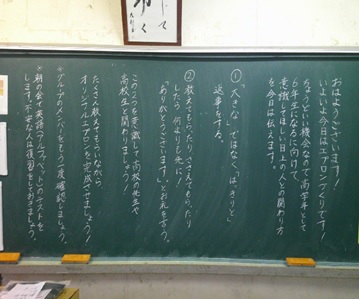 おはようございます！
いよいよ今日はエプロンづくりです！
ちょうどいい機会なので高学年として
6年生になるに向けて、
意識してほしい目上の人との関わり方
を今日は伝えます。
①「大きな」ではなく、「はっきりと」
返事をする。
②教えてもらったり、ささえてもらったり
したら何よりも先に！
「ありがとうございます」とお礼を言う。
この2つを意識して高校の先生や
高校生と関わりましょう！
たくさん教えてもらいながら
オリジナルエプロンを完成させましょう！
＊グループのメンバーをもう一度確認しましょう。
＊朝の会で英語(アルファベット)のテストを
します。不安な人は復習をしておきましょう。